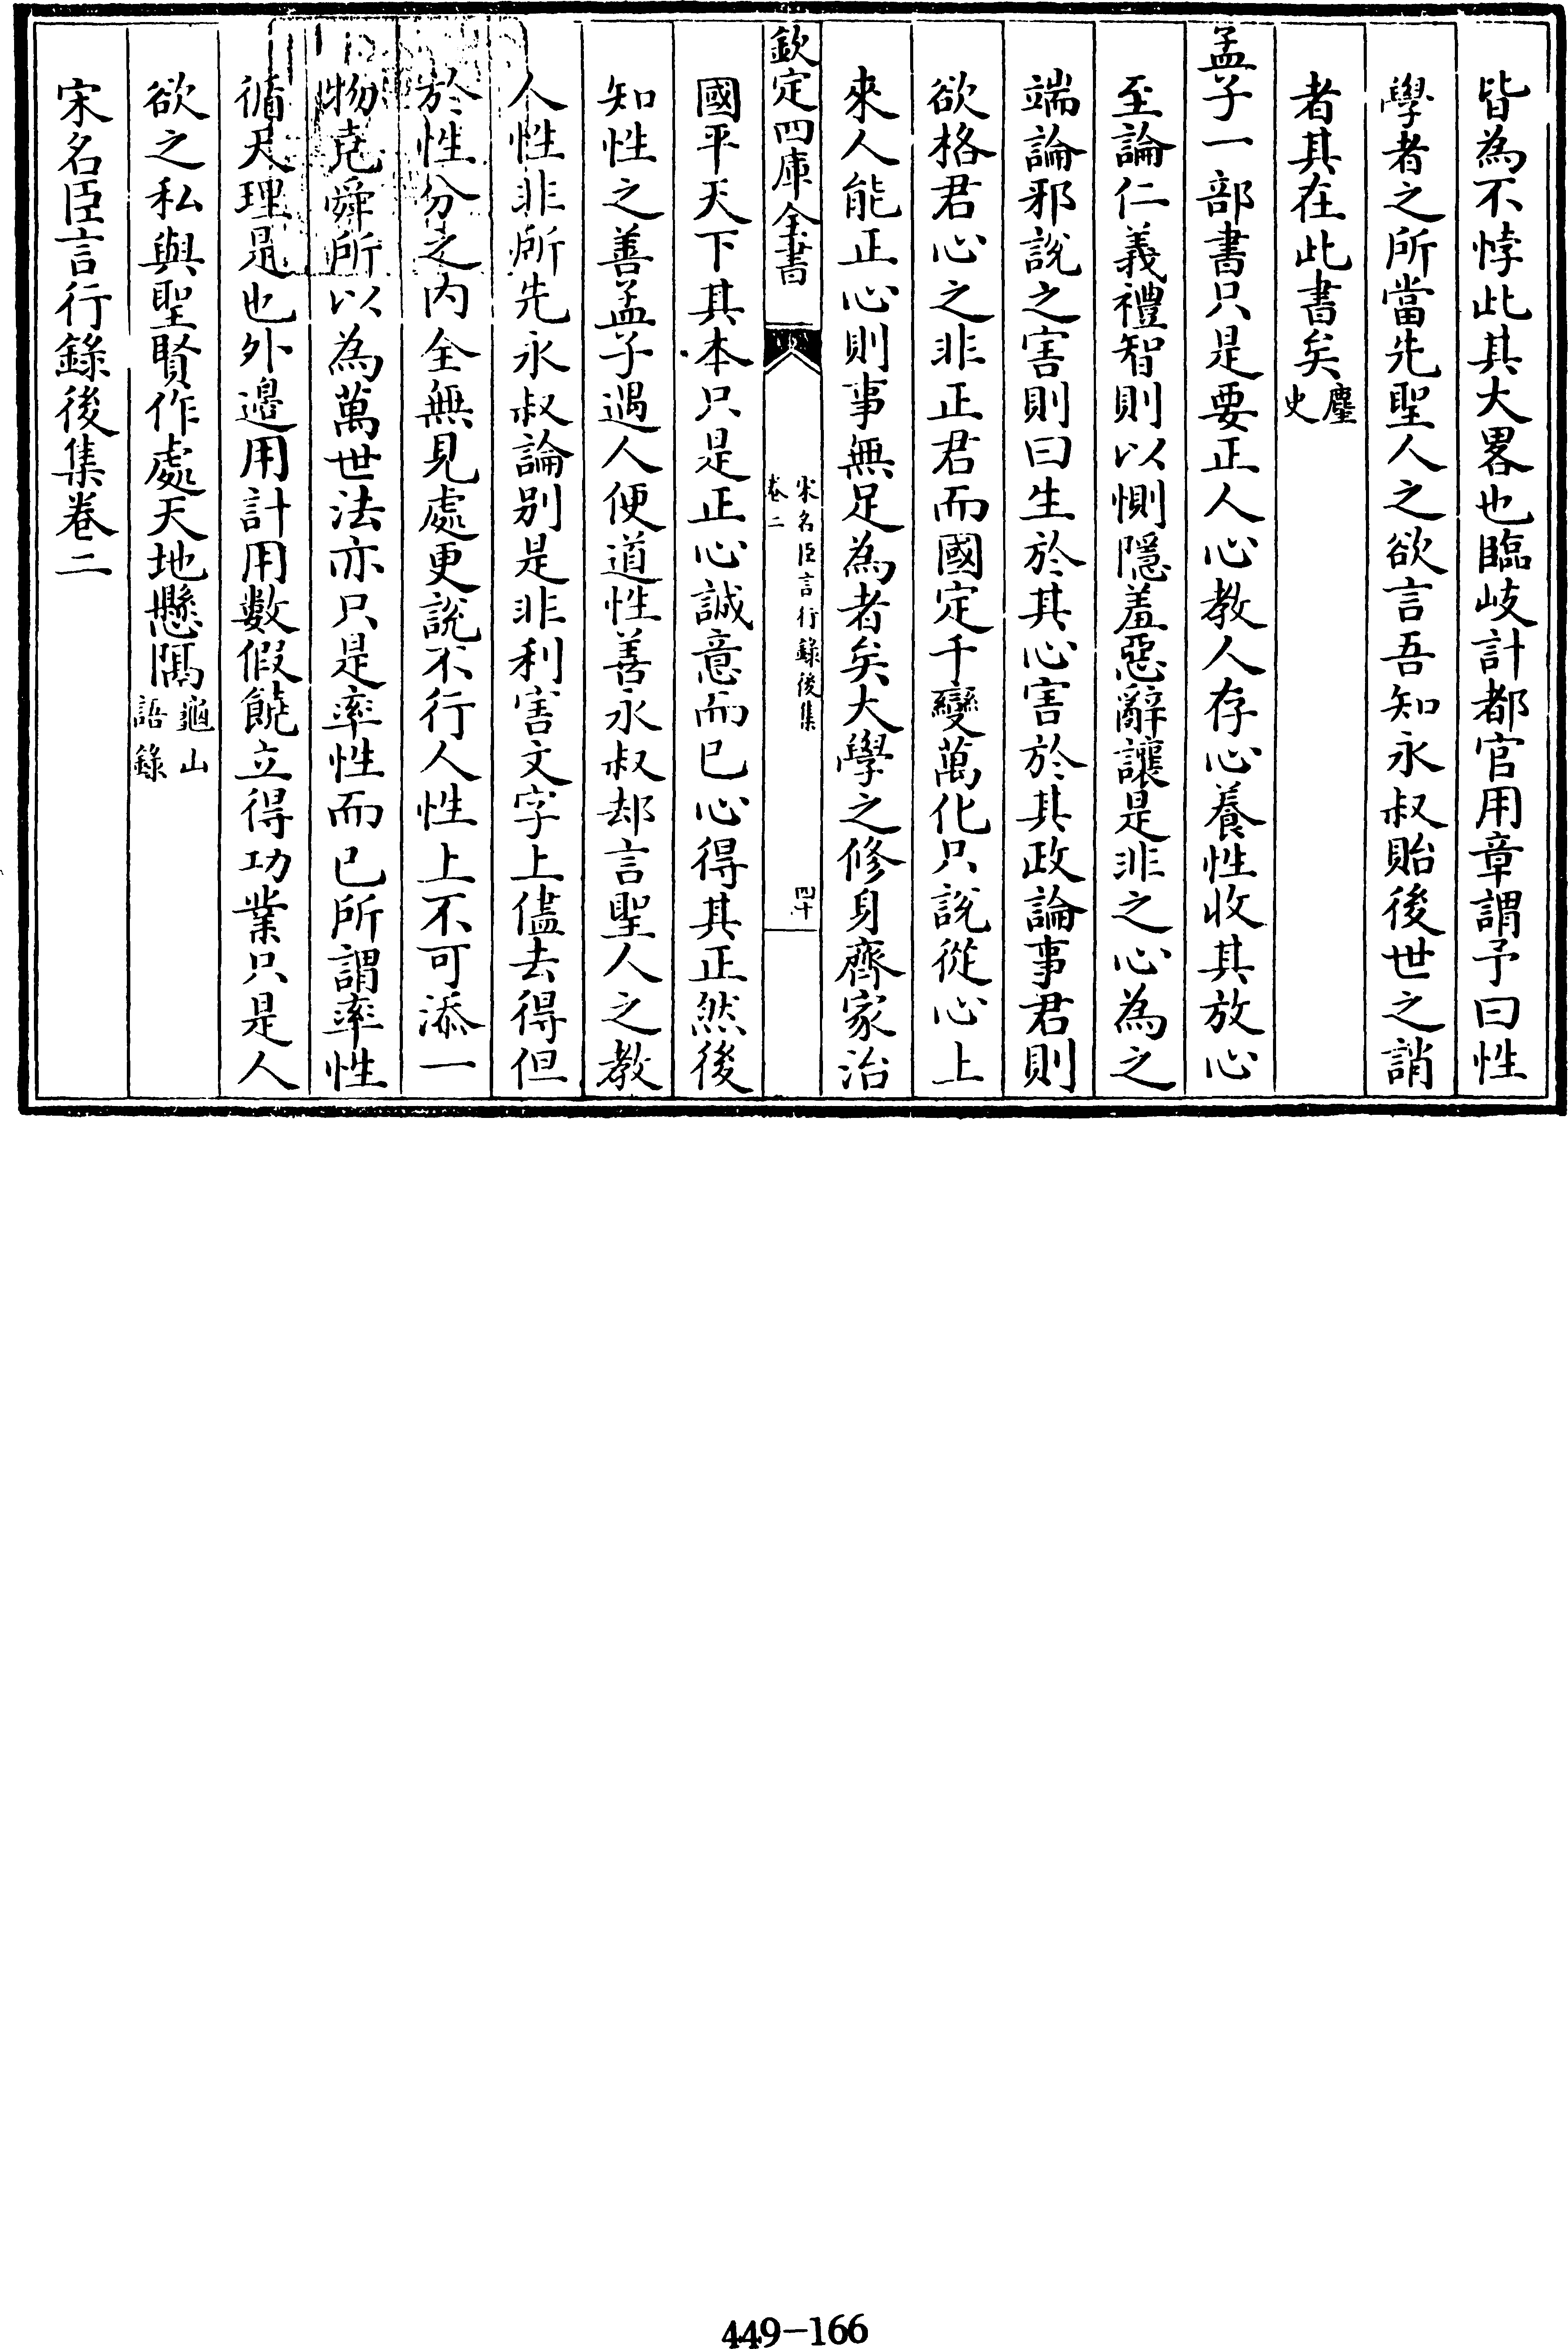 皆為不悖此其大畧也臨岐計都官用章謂予曰性
學者之所當先聖人之欲言吾知永叔貽後世之誚
者其在此書矣麈史
孟子一部書只是要正人心教人存心養性收其放心
至論仁義禮智則以惻隱羞惡辭讓是非之心為之
端論邪說之害則曰生於其心害於其政論事君則
欲格君心之非正君而國定千變萬化只說從心上
來人能正心則事無足為者矣大學之修身齊家治
欽定四庫全書
宋名臣言行錄後集
卷二
四十
國平天下其本只是正心誠意而已心得其正然後
知性之善孟子遇人便道性善永叔却言聖人之教
人性非所先永叔論别是非利害文字上儘去得但
於性分之内全無見處更說不行人性上不可添一
物堯舜所以為萬世法亦只是率性而已所謂率性
循天理是也外邉用計用數假饒立得功業只是人
欲之私與聖賢作處天地懸隔龜山語錄
宋名臣言行錄後集卷二
449-166